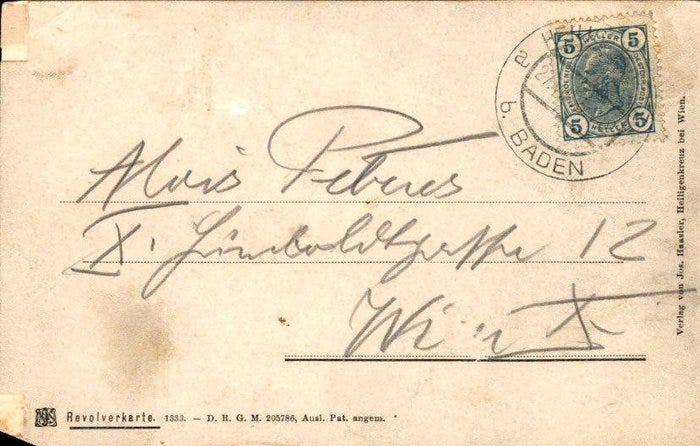 5 HELLER 5
5 HELLER 5
HEILI
a
21.
b. BADEN
Alois Peteres
X. Humboldtgasse 12
Wien X
Verlag von Jos. Haasler, Heiligenkreuz bei Wien.
Revolverkarte. 1333. — D. R. G. M. 205786, Ausl. Pat. angem.